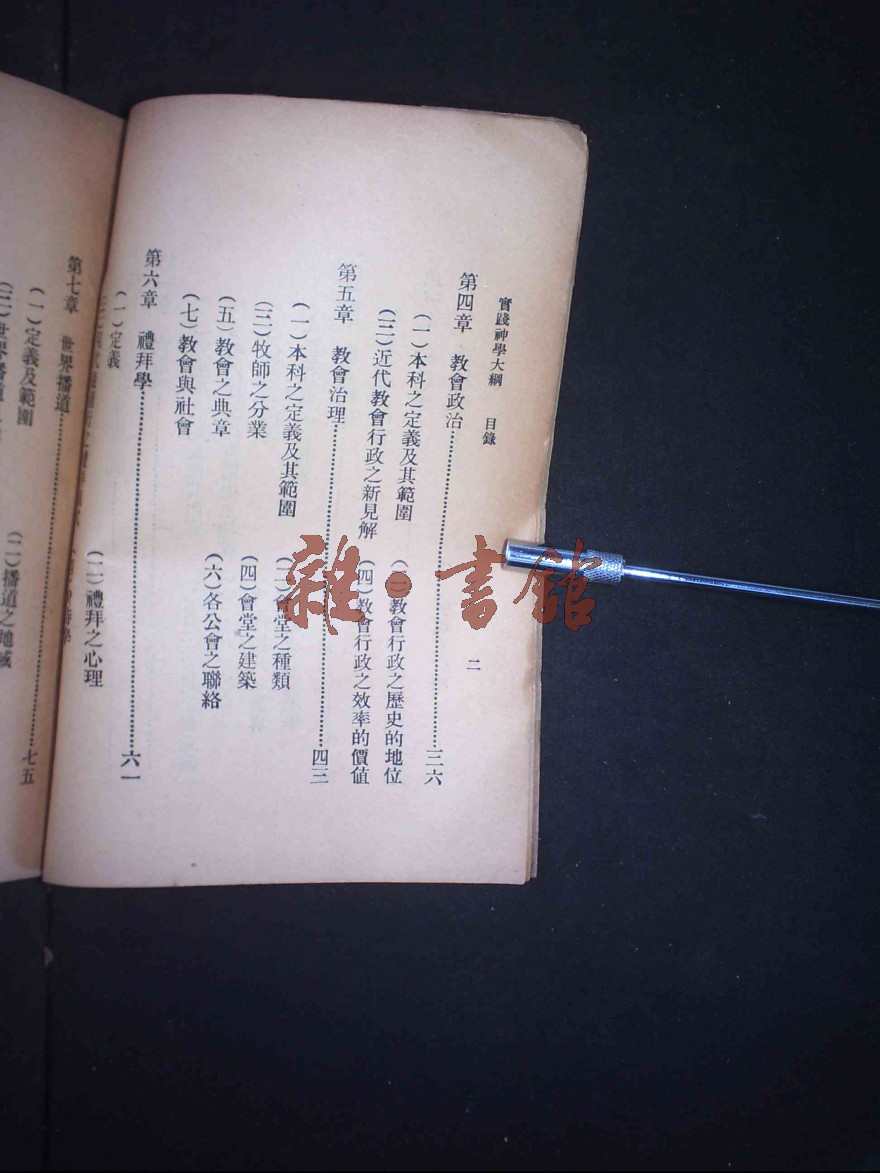 實踐神學大綱 目錄 二
第四章 教會政治 三六
(一)本科之定義及其範圍 (二)教會行政之歷史的地位
(三)近代教會行政之新見解 (四)教會行政之效率的價值
第五章 教會治理 四三
(一)本科之定義及其範圍 (二)會堂之種類
(三)牧師之分業 (四)會堂之建築
(五)教會之典章 (六)各公會之聯絡
(七)教會與社會
第六章 禮拜學 六一
(一)定義 (二)禮拜之心理
第七章 世界播道 七五
(一)定義及範圍 (二)播道之地域
雜·書館